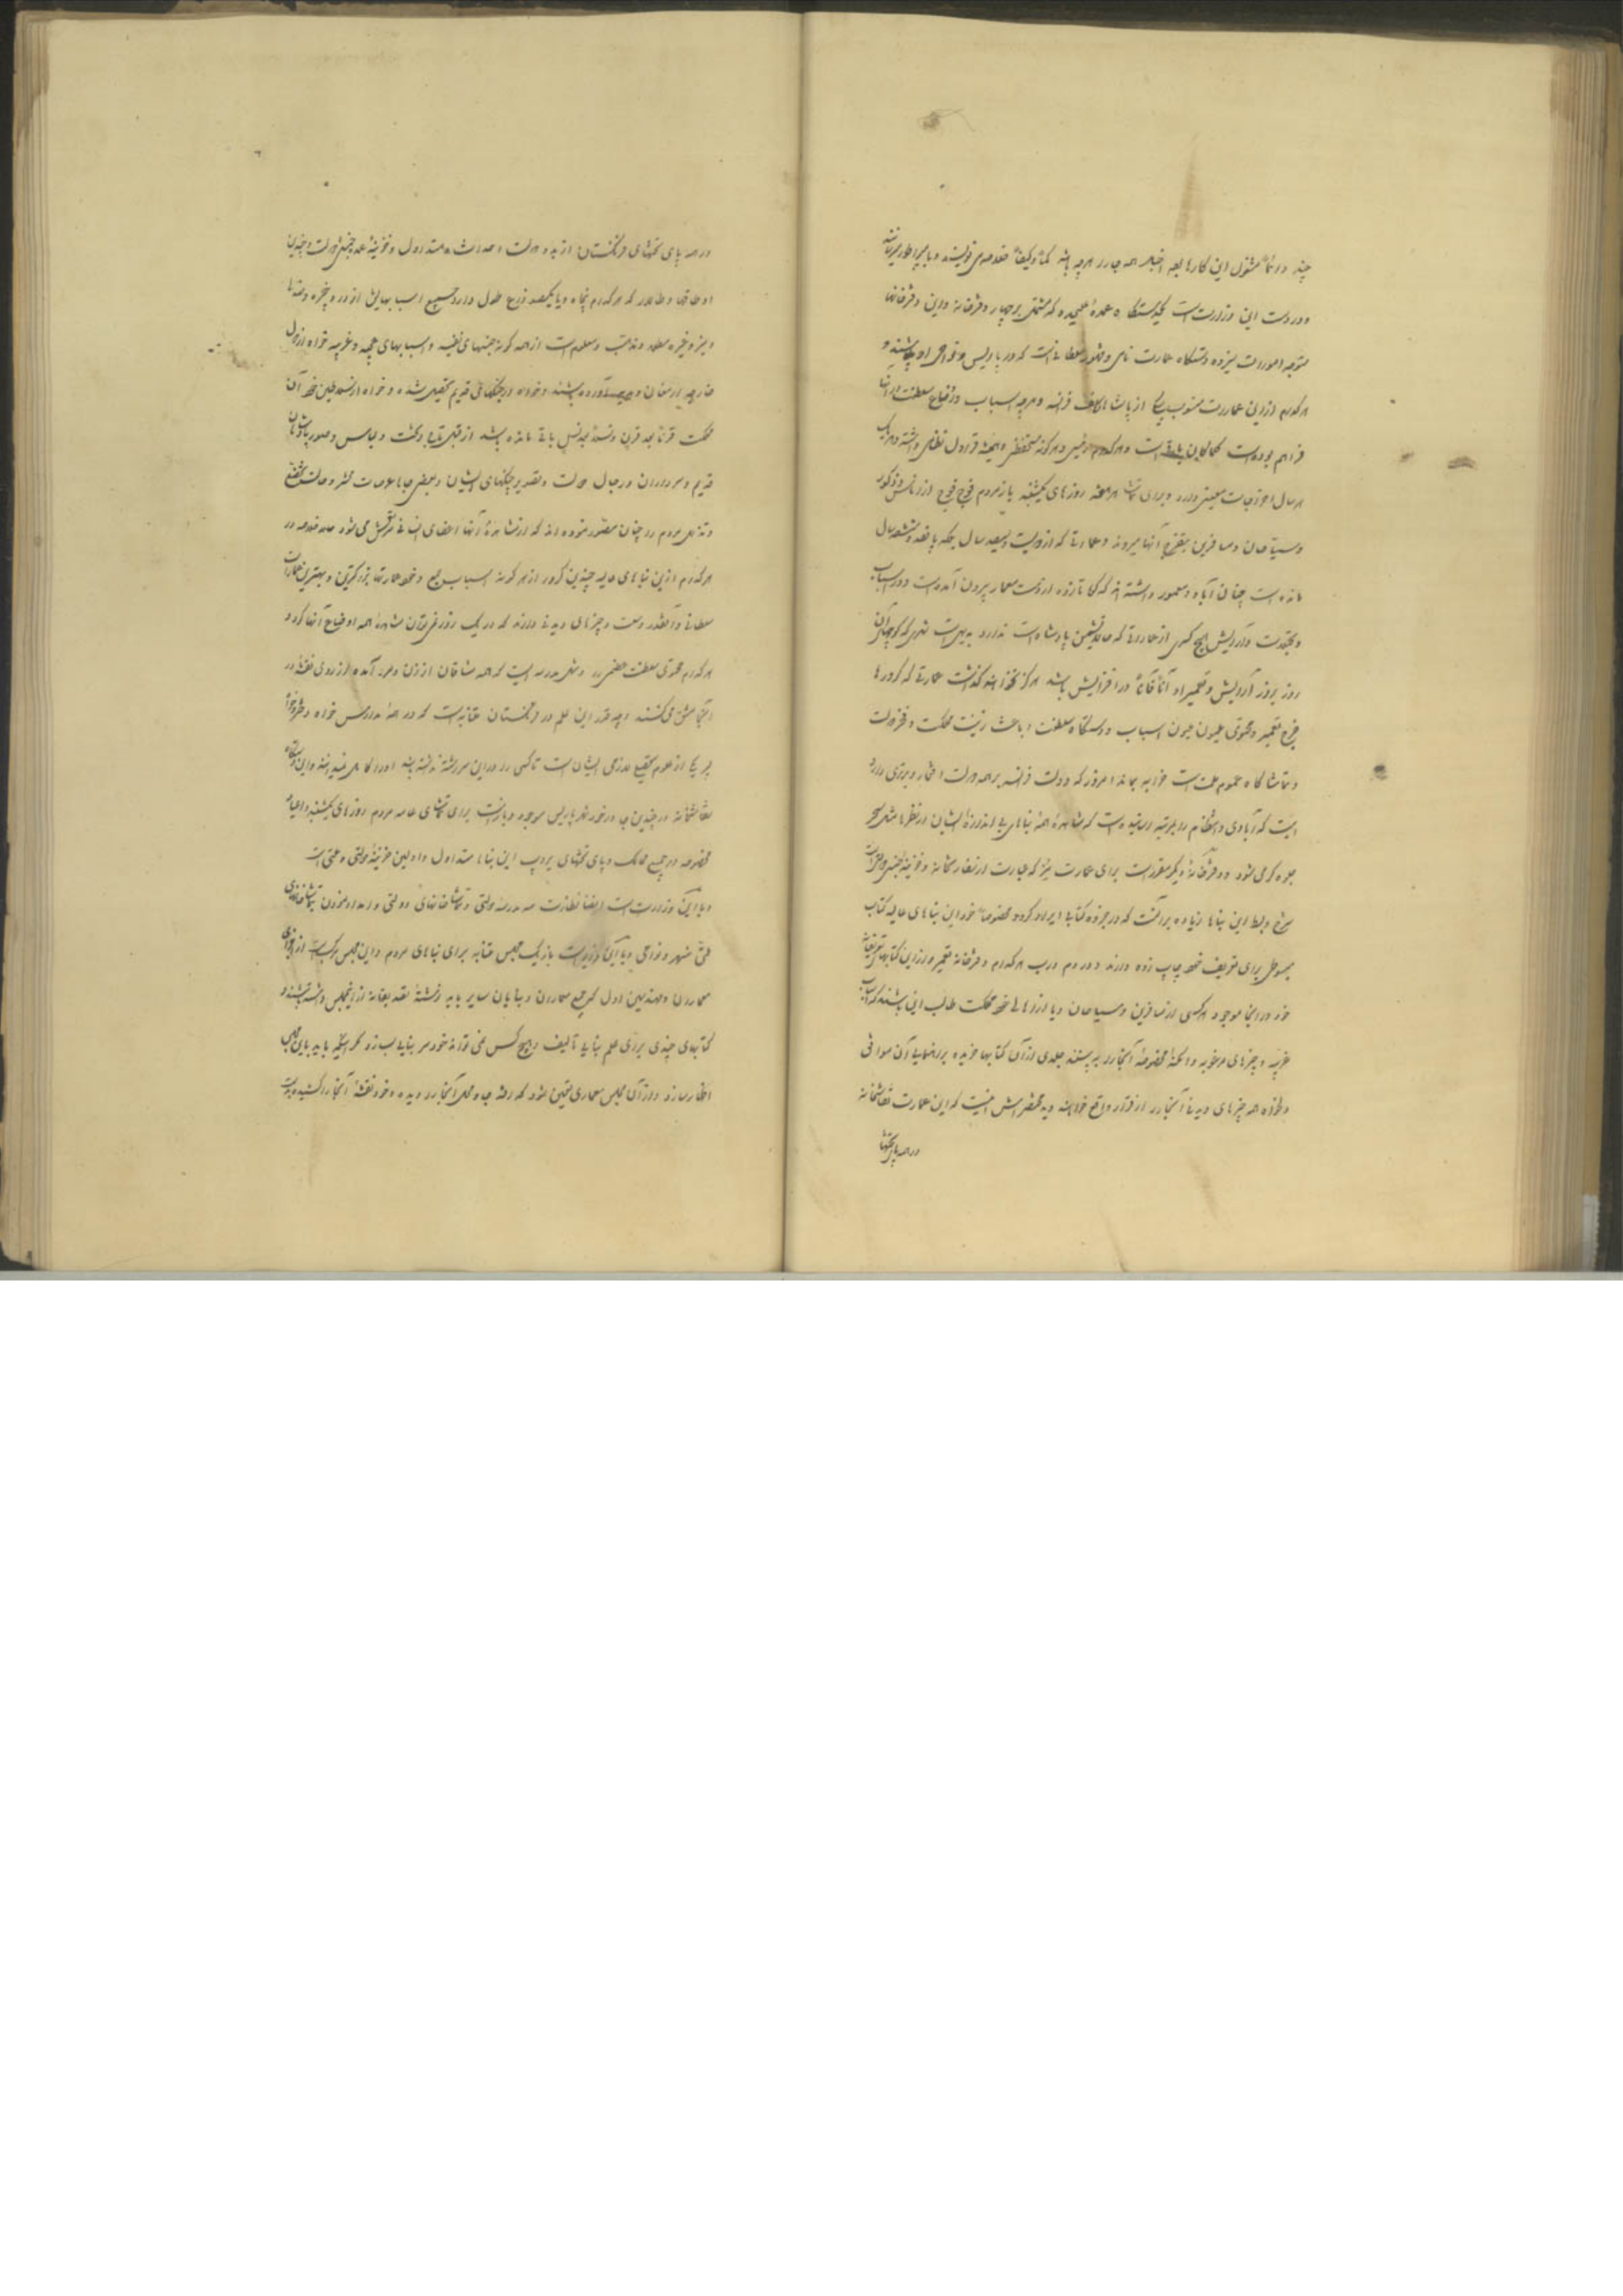 چند دائماً مشغول این کارها بعد اخبار همه جا را هرچه باشد کماً و کیفاً خلاصه می‌نویسند و بامپراطور میرسانند
و در دست این وزارت است یکدستگاه عمدهٔ علیحده که مشتمل بر چهار دفترخانه و این دفترخانها
متوجه امورات سیزده دستگاه عمارت نامی و مشهور سلطانی است که در پاریس و نواحی او میباشند و
هرکدام ازین عمارت منسوب بیکی از پادشاهان فرانسه و هرچه اسباب و اوضاع سلطنت در آنها
فراهم بوده است کماکان باقی است و هرکدام رئیس و هرگونه مستحفظ و همیشه قراول نظامی داشته و هر یک
هر سال اخراجات معینی دارد و برای تماشا هر هفته روزهای یکشنبه باز مردم فوج فوج از زنانش و ذکور
و سیاحان و مسافرین بتفرج آنها میروند و عماراتی که از دویست و سیصد سال بلکه پانصد و ششصد سال
مانده است چنان آباد و معمور داشته‌اند که گویا تازه از دست معمار بیرون آمده است و در اسباب
و تجملات و آرایش هیچ کمی از عماراتی که حال نشیمن پادشاه است ندارد بدیهی است شهری که کوچهای آن
روز بروز آرایش و تعمیر او آناً فآناً در افزایش باشد هرگز نخواهند گذاشت عمارتی که کرورها
خرج تعمیر و محتوی ملیون ملیون اسباب و دستگاه سلطنت و باعث زینت مملکت و فخر دولت
و تماشاگاه عموم ملت است خرابه بماند امروز که دولت فرانسه بر همه دولت افتخار و برتری دارد
اینست که آبادی و انتظام را بمرتبه رسانیده است که مشاهدهٔ همهٔ بناهای بی اندازهٔ ایشان در نظرها مثل سحر
جلوه گر می‌شود و دفترخانهٔ دیگر مقرر است برای عمارت نیز که عبارت از نقاشخانه و خزینهٔ جنسی
شرح و بسط این بناها زیاده بر آنست که در جزوه کتابی ایراد گردد مخصوصاً خود این بناهای عالیه کتاب
مبسوطی برای تعریف خود چاپ زده دارند و در دم درب هرکدام دفترخانه تعمیر و ازاین کتابهای تعریفات
خود در آنجا موجود هرکسی از مسافرین و سیاحان و یا از اهالی خود مملکت طالب این باشند که اسباب
غریبه و چیزهای مرغوبه و امکنهٔ مخصوصهٔ آنجا را ببینند جلدی از آن کتابها خریده براهنمایی آن موافق
دلخواه همه چیزهای دیدنی آنجا را از قرار واقع خواهند دید مختصرش اینست که این عمارت نقاشخانه
در همه پای تختها
در همه پای تختهای فرنگستان از بدو دولت احداث شده متداول و خزینهٔ عمده جنسی دولت و چندین
اوطاقها و طالار که هرکدام پنجاه و یا یکصد ذرع طول دارد جمیع اسبابهایش از در و پنجره و صندلیها
و میز و غیره مطلا و مذهب و مملو است از همه گونه جنسهای نفیسه و اسبابهای عجیبه و غریبه خواه از دول
خارجه ارمغان و هدیه آورده باشند و خواه در جنگهای قدیم تحصیل شده و خواه از سلاطین خود آن
مملکت قرناً بعد قرن و نسلاً بعد نسل باقی مانده باشد از قبیل تاج و تخت و لباس و صور پادشاهان
قدیم و سرداران و رجال دولت و تصویر جنگهای ایشان و بعضی جاها علامات محشر و حالت
و تذلل مردم را چنان مصور نموده‌اند که از مشاهدهٔ آنها اعضای انسانی مرتعش می‌شود حاصل خلاصه در
هرکدام ازین بناهای عالیه چندین کرور از هر گونه اسباب جمع و خود عمارتها بزرگترین و بهترین عمارات
سلطانی و آنقدر وسعت و چیزهای دیدنی دارند که در یک روز نمی‌توان مشاهدهٔ همه اوضاع آنها کرد و
هرکدام محتوی سلطنت عظمی را و مثل مدرسه ایست که همه مشاقان از زن و مرد آمده از روی نقشها در
آنجا مشق می‌کنند و چه قدر این علم در فرنگستان عتابه است که در همهٔ مدارس خواه
پس یکی از علوم بجمیع لازمهٔ ایشان است تا کسی را در این سررشته نداشته باشد او را کامل نمیدانند و این دستگاه
نقاشخانه در چندین جا در خود شهر پاریس موجود و باز است برای تماشای عامه مردم روزهای یکشنبه و اعیاد
مخصوصه در جمیع ممالک و پای تختهای یوروپ این بناها متداول و اولین خزینهٔ دولتی و ملتی است
و با این وزارت است ایضاً نظارت سه مدرسه دولتی و تماشاخانهای دولتی و امداد نمودن بتماشاخانهای
ملتی شهر و نواحی و با این وزارت است باز یک مجلس عتابه برای بناهای مردم و این مجلس مرکب است از
معماران و مهندسین اول که جمیع معماران و بنایان سایر باید نوشتهٔ تصدیقنامه از این مجلس داشته باشند و
کتابهای چندی برای علم بنایی تألیف و هیچ کس نمی تواند خودسر بنایی بسازد مگر اینکه باید باین مجلس
اظهار سازد و از آن مجلس معماری تعیین شود که رفته جا و محل آنجا را دیده و خود نقشهٔ آنجا را کشیده بدست